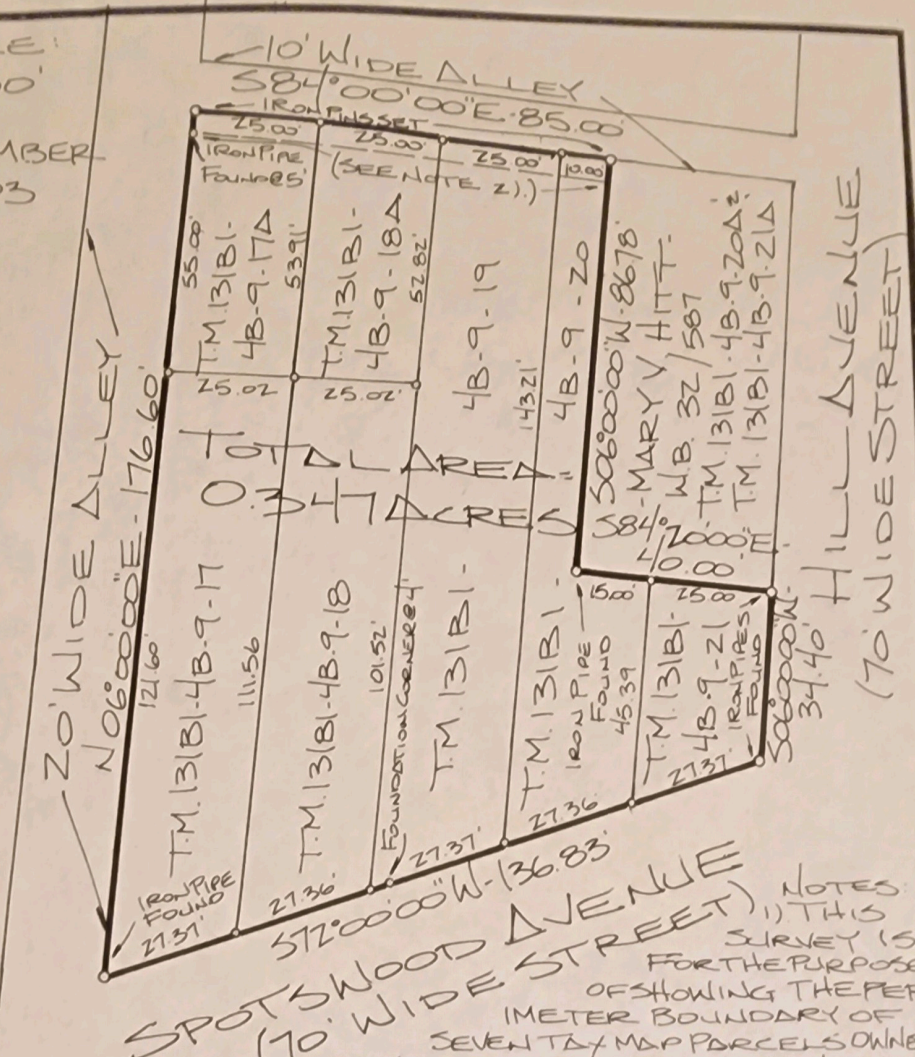 LE:
0'
MBER
03
10' WIDE ALLEY
S84°00'00"E-85.00'
IRON PINS SET
25.00'
25.00'
25.00'
10.00'
IRON PIPE
FOUND@5'
(SEE NOTE 2).)
55.00'
T.M.131B1-
4B-9-17A
53.91'
T.M.131B1-
4B-9-18A
52.82'
4B-9-19
143.21'
4B-9-20
S06°00'00"W-86.78'
MARY V HITT-
W.B. 32/587
T.M.131B1-4B-9-20A &
T.M.131B1-4B-9-21A
HILL AVENUE
(70' WIDE STREET)
20' WIDE ALLEY
N06°00'00"E-176.60'
25.02
25.02'
TOTAL AREA=
0.347 ACRES
S84°20'00"E-
40.00'
15.00'
25.00
121.60'
T.M.131B1-4B-9-17
111.56
T.M.131B1-4B-9-18
101.52'
FOUNDATION CORNER@4'
T.M.131B1-
T.M.131B1-
IRON PIPE
FOUND
45.39
T.M.131B1-
4B-9-21
IRON PIPES
FOUND
S06°00'00"W-
34.40'
IRON PIPE
FOUND
27.37'
27.36'
27.37'
27.36
27.37'
S72°00'00"W-136.83'
SPOTSWOOD AVENUE
(70' WIDE STREET)
NOTES:
1) THIS
SURVEY IS
FOR THE PURPOSE
OF SHOWING THE PER
IMETER BOUNDARY OF
SEVEN TAX MAP PARCELS OWNE